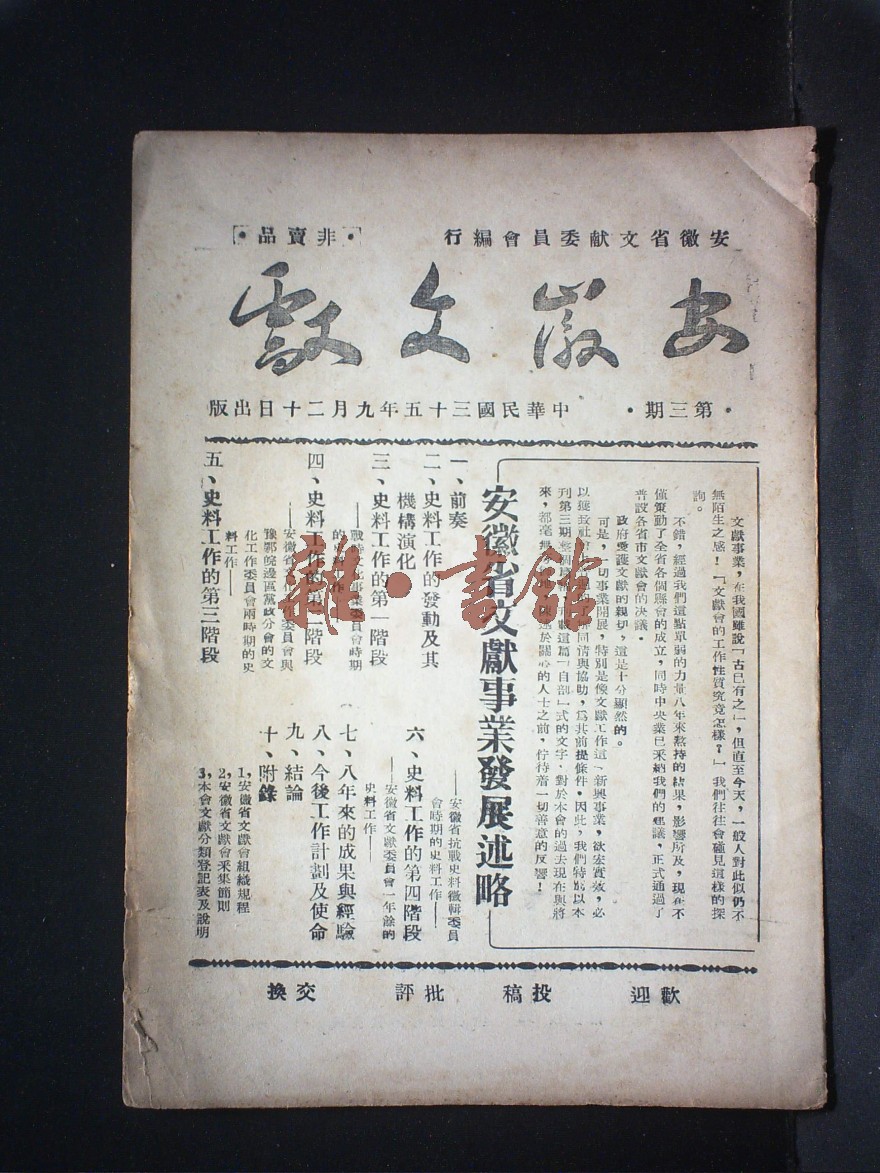 安徽省文献委員會編行
•非賣品•
安徽文獻
•第三期• 中華民國三十五年九月二十日出版
文獻事業，在我國雖說「古已有之」，但直至今天，一般人對此似仍不
無陌生之感！「文獻會的工作性質究竟怎樣？」我們往往會碰見這樣的探
詢。
不錯，經過我們這點單弱的力量八年來熬持的結果，影響所及，現在不
僅策動了全省各個縣會的成立，同時中央業已采納我們的建議，正式通過了
普設各省市文獻會的决議。
政府愛護文獻的親切，這是十分顯然的。
可是，一切事業開展，特別是像文獻工作這一新興事業，欲宏實效，必
以獲致社會同情與協助，爲其前提條件。因此，我們特以本
刊第三期整個這篇「自剖」式的文字，對於本會的過去現在與將
來，都毫無於關心的人士之前，佇待着一切善意的反響！
安徽省文獻事業發展述略
一、前奏
二、史料工作的發動及其
機構演化
三、史料工作的第一階段
——戰時事業委員會時期
四、史料工作的第二階段
——安徽省文化工作委員會與
豫鄂皖邊區黨政分會的文
化工作委員會兩時期的史
料工作——
五、史料工作的第三階段
——安徽省抗戰史料徵輯委員
會時期的史料工作——
六、史料工作的第四階段
——安徽省文獻委員會一年餘的
史料工作——
七、八年來的成果與經驗
八、今後工作計劃及使命
九、結論
十、附錄
1，安徽省文獻會組織規程
2，安徽省文獻會采集簡則
3，本會文獻分類登記表及說明
歡迎 投稿 批評 交換
雜•書館